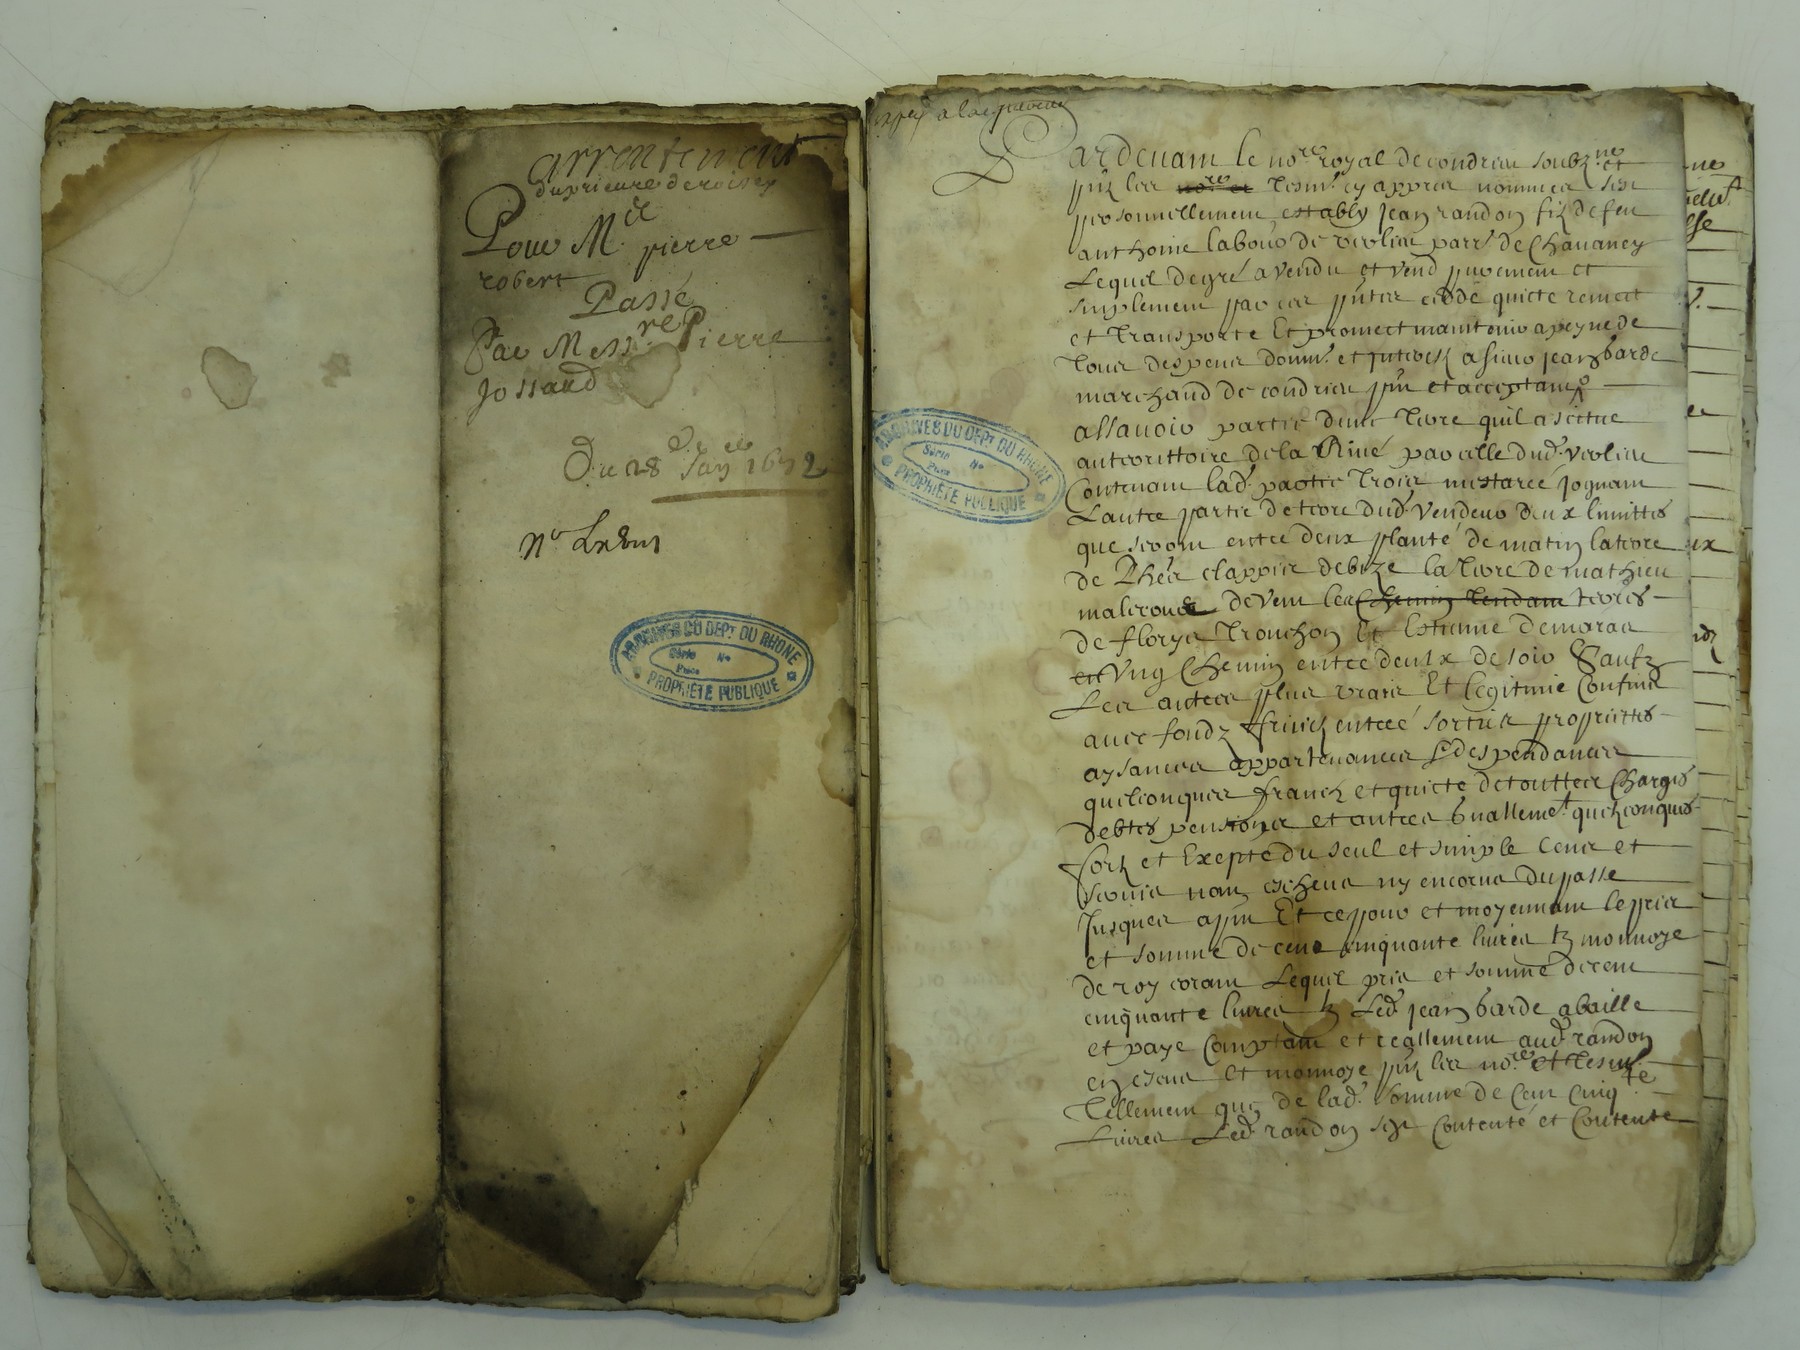 arrentement
du prieuré de roisey
Pour M.re pierre
robert
Passé
Par Mess.re Pierre
Jossaud
Du 28.e Jan.er 1652
N.o
ARCHIVES DU DEPT DU RHONE
Série No
Pièce
PROPRIÉTÉ PUBLIQUE
exped a lacquereur
Pardevant le no.re royal de condrieu soubz.ne et
pnt les tesm. cy appres nommes sest
personnellement estably jean randon filz de feu
anthoine labour de verlieu parr. de Chavaney
Lequel de gré a vendu et vend purement et
simplement par ces pntes cedde quicte remect
et transporte Et promect maintenir a peyne de
tous despens domm. et interestz a sieur jean barde
marchand de condrieu pnt et acceptant
assavoir partie dune terre quil a scitue
au territtoire de la Rive parcelle dud. verlieu
Contenant lad. partie trois mestarée joignant
Lautre partie de terre dud. Vendeur deux limittes
que seront entre deux planté de matin la terre
de clappier de bize la terre de mathieu
de vent les chemin tendant terres
de florys trouchon Et Estienne de maras
et Ung Chemin entre deulx de soir Saufz
Les autres plus vrais Et legitime Confins
avec fondz fruictz entree sorties proprietes
aysances appartenances & despendances
quelconques franck et quicte de touttes Charges
debtes pensions et autres gnallemet quelconques
forz et Exepté du seul et simple cens et
servis non escheus ny encorus du passe
Jusques a pnt Et ce pour et moyennant le prix
et somme de cent cinquante livres tz monnoye
de roy corant Lequel prix et somme de cent
cinquante livres tz Led. jean barde a baille
et paye Comptant et reallement aud. randon
en escus et monnoye pnt les no.re et tesm.
tellement que de lad. somme de Cent Cinq.te
Livres Led. randon sest Contenté et Contente
ARCHIVES DU DEPT DU RHONE
Série No
Pièce
PROPRIÉTÉ PUBLIQUE